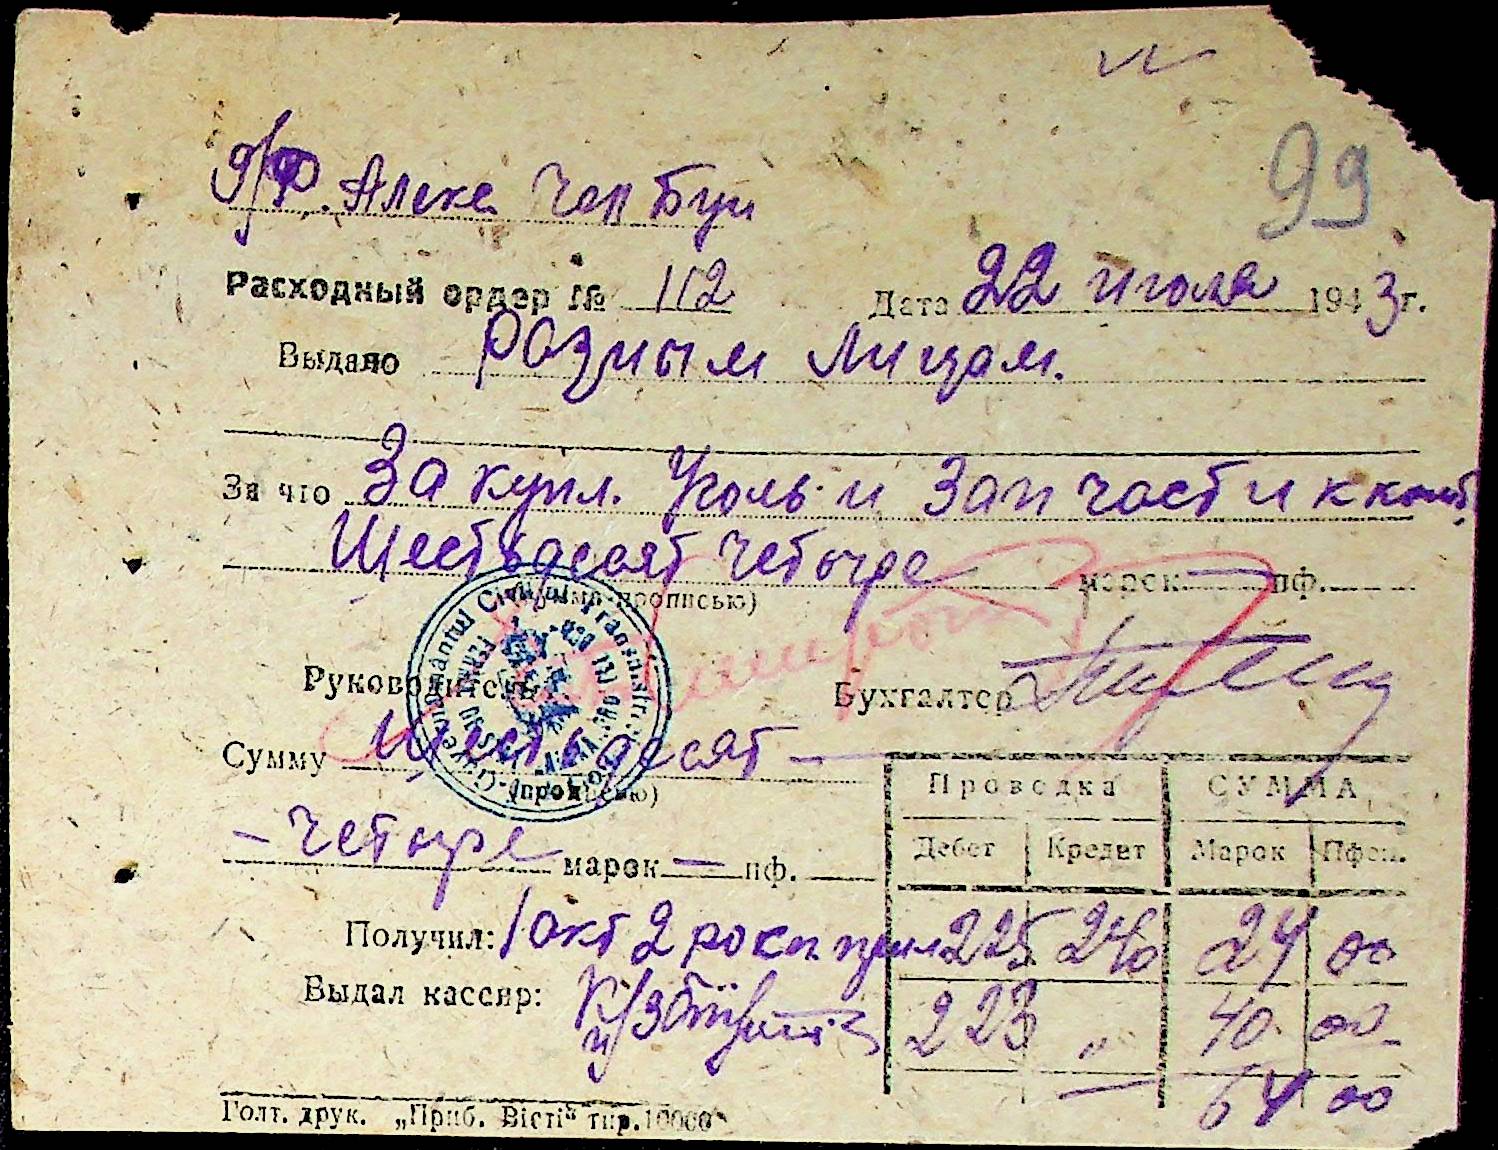 99
Алекс
Расходный ордер № 112 Дата 22 июля 1943 г.
Выдано Разным лицам.
За что За купл. Уголь и Зап части к
Шестьдесят четыре марок — пф.
(сумма прописью)
Руководитель Бухгалтер
Сумму Шестьдесят —
(прописью)
Проводка СУММА
— четыре марок — пф.
Дебет Кредит Марок Пфен.
Получил: 1 акт 2 225 240 24 00
Выдал кассир: 223 " 40 00
64 00
Голт. друк. „Приб. Вісті“ тир. 10000